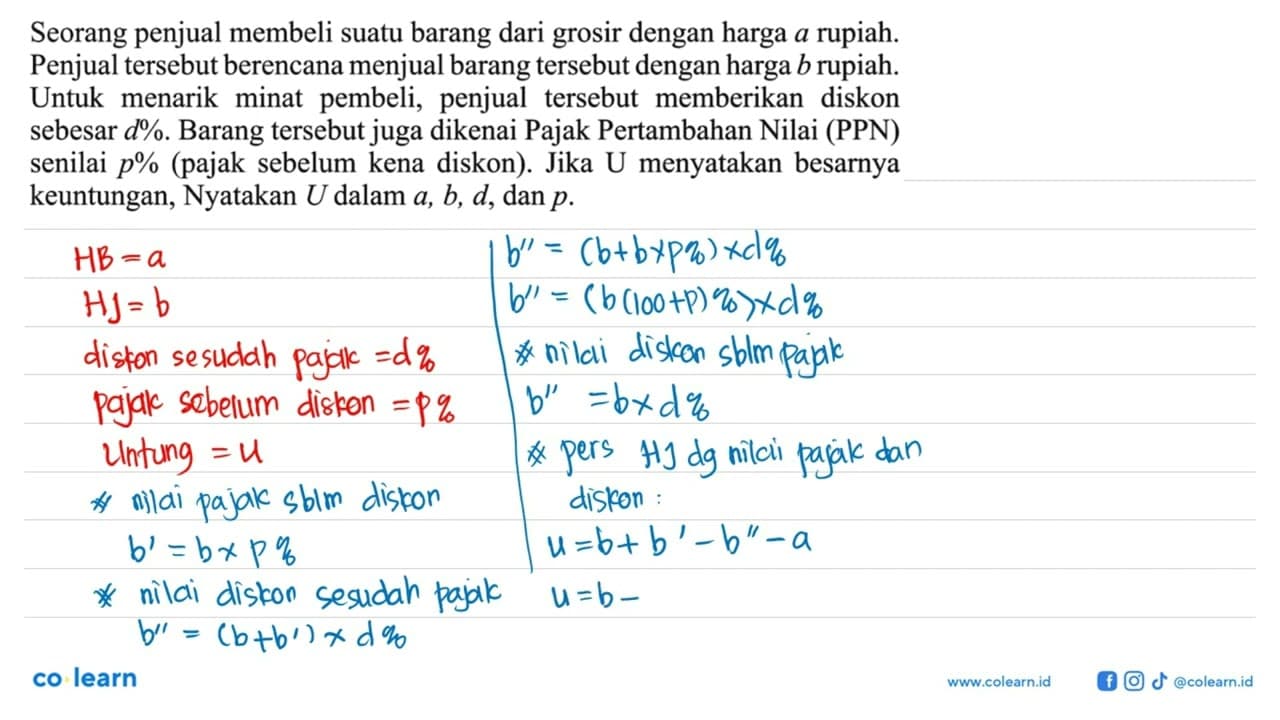 Seorang penjual membeli suatu barang dari grosir dengan harga a rupiah.
Penjual tersebut berencana menjual barang tersebut dengan harga b rupiah.
Untuk menarik minat pembeli, penjual tersebut memberikan diskon
sebesar d%. Barang tersebut juga dikenai Pajak Pertambahan Nilai (PPN)
senilai p% (pajak sebelum kena diskon). Jika U menyatakan besarnya
keuntungan, Nyatakan U dalam a, b, d, dan p.
HB = a
HJ = b
diskon sesudah pajak = d%
pajak sebelum diskon = p%
Untung = u
* nilai pajak sblm diskon
b' = b × p%
* nilai diskon sesudah pajak
b'' = (b+b') × d%
b'' = (b+b×p%)×d%
b'' = (b(100+p)%)×d%
* nilai diskon sblm pajak
b'' = b × d%
* pers HJ dg nilai pajak dan
diskon :
u = b + b' - b'' - a
u = b -
co learn
www.colearn.id
@colearn.id